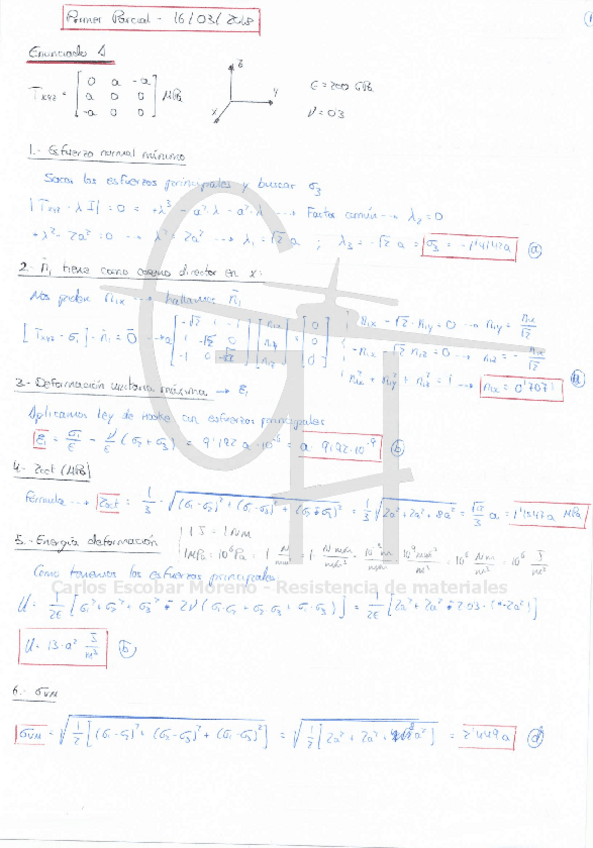 Primer Parcial - 16/03/2018
1
Enunciado 1
T_xyz = [0 a -a; a 0 0; -a 0 0] MPa
z
y
x
E = 200 GPa
ν = 03
1.- Esfuerzo normal mínimo
Sacar los esfuerzos principales y buscar σ3
|T_xyz - λI| = 0 = +λ³ - a²λ - a²λ ---> Factor común --> λ2 = 0
+λ² - 2a² = 0 --> λ² = 2a² --> λ1 = √2 a ; λ3 = -√2 a = σ3 = -1'4142a (a)
2.- n1 tiene como coseno director en x:
Nos piden n1x ---> hallamos n1
[T_xyz - σ1]·n1 = 0 --> a [-√2 1 -1; 1 -√2 0; -1 0 -√2] [n1x; n1y; n1z] = [0; 0; 0]
n1x - √2·n1y = 0 --> n1y = n1x/√2
-n1x - √2 n1z = 0 --> n1z = - n1x/√2
n1x² + n1y² + n1z² = 1 --> n1x = 0'7071
3.- Deformación unitaria máxima --> ε1
Aplicamos ley de Hooke con esfuerzos principales
ε1 = σ1/E - ν/E (σ2 + σ3) = 9'192 a·10⁻⁶ = a 9'192·10⁻⁹ (b)
4.- τoct (MPa)
Fórmula --> τoct = 1/3 · √((σ1-σ2)² + (σ1-σ3)² + (σ2-σ3)²) = 1/3 √(2a²+2a²+8a²) = √12/3 a = 1'1547a MPa
5.- Energía deformación
1J = 1Nm
1MPa = 10⁶ Pa = 1 N/mm² = 1· N mm/mm³ · 10⁻³m/mm · 10⁹mm³/m³ = 10⁶ Nm/m³ = 10⁶ J/m³
Como tenemos los esfuerzos principales
Carlos Escobar Moreno - Resistencia de materiales
U = 1/2E [σ1² + σ2² + σ3² - 2ν(σ1·σ2 + σ2·σ3 + σ1·σ3)] = 1/2E [2a² + 2a² - 2·03·(-2a²)]
U = 13·a² J/m³ (b)
6.- σVM
σVM = √(1/2 [(σ1-σ2)² + (σ2-σ3)² + (σ1-σ3)²]) = √(1/2 [2a² + 2a² + 8a²]) = 2'449a (d)